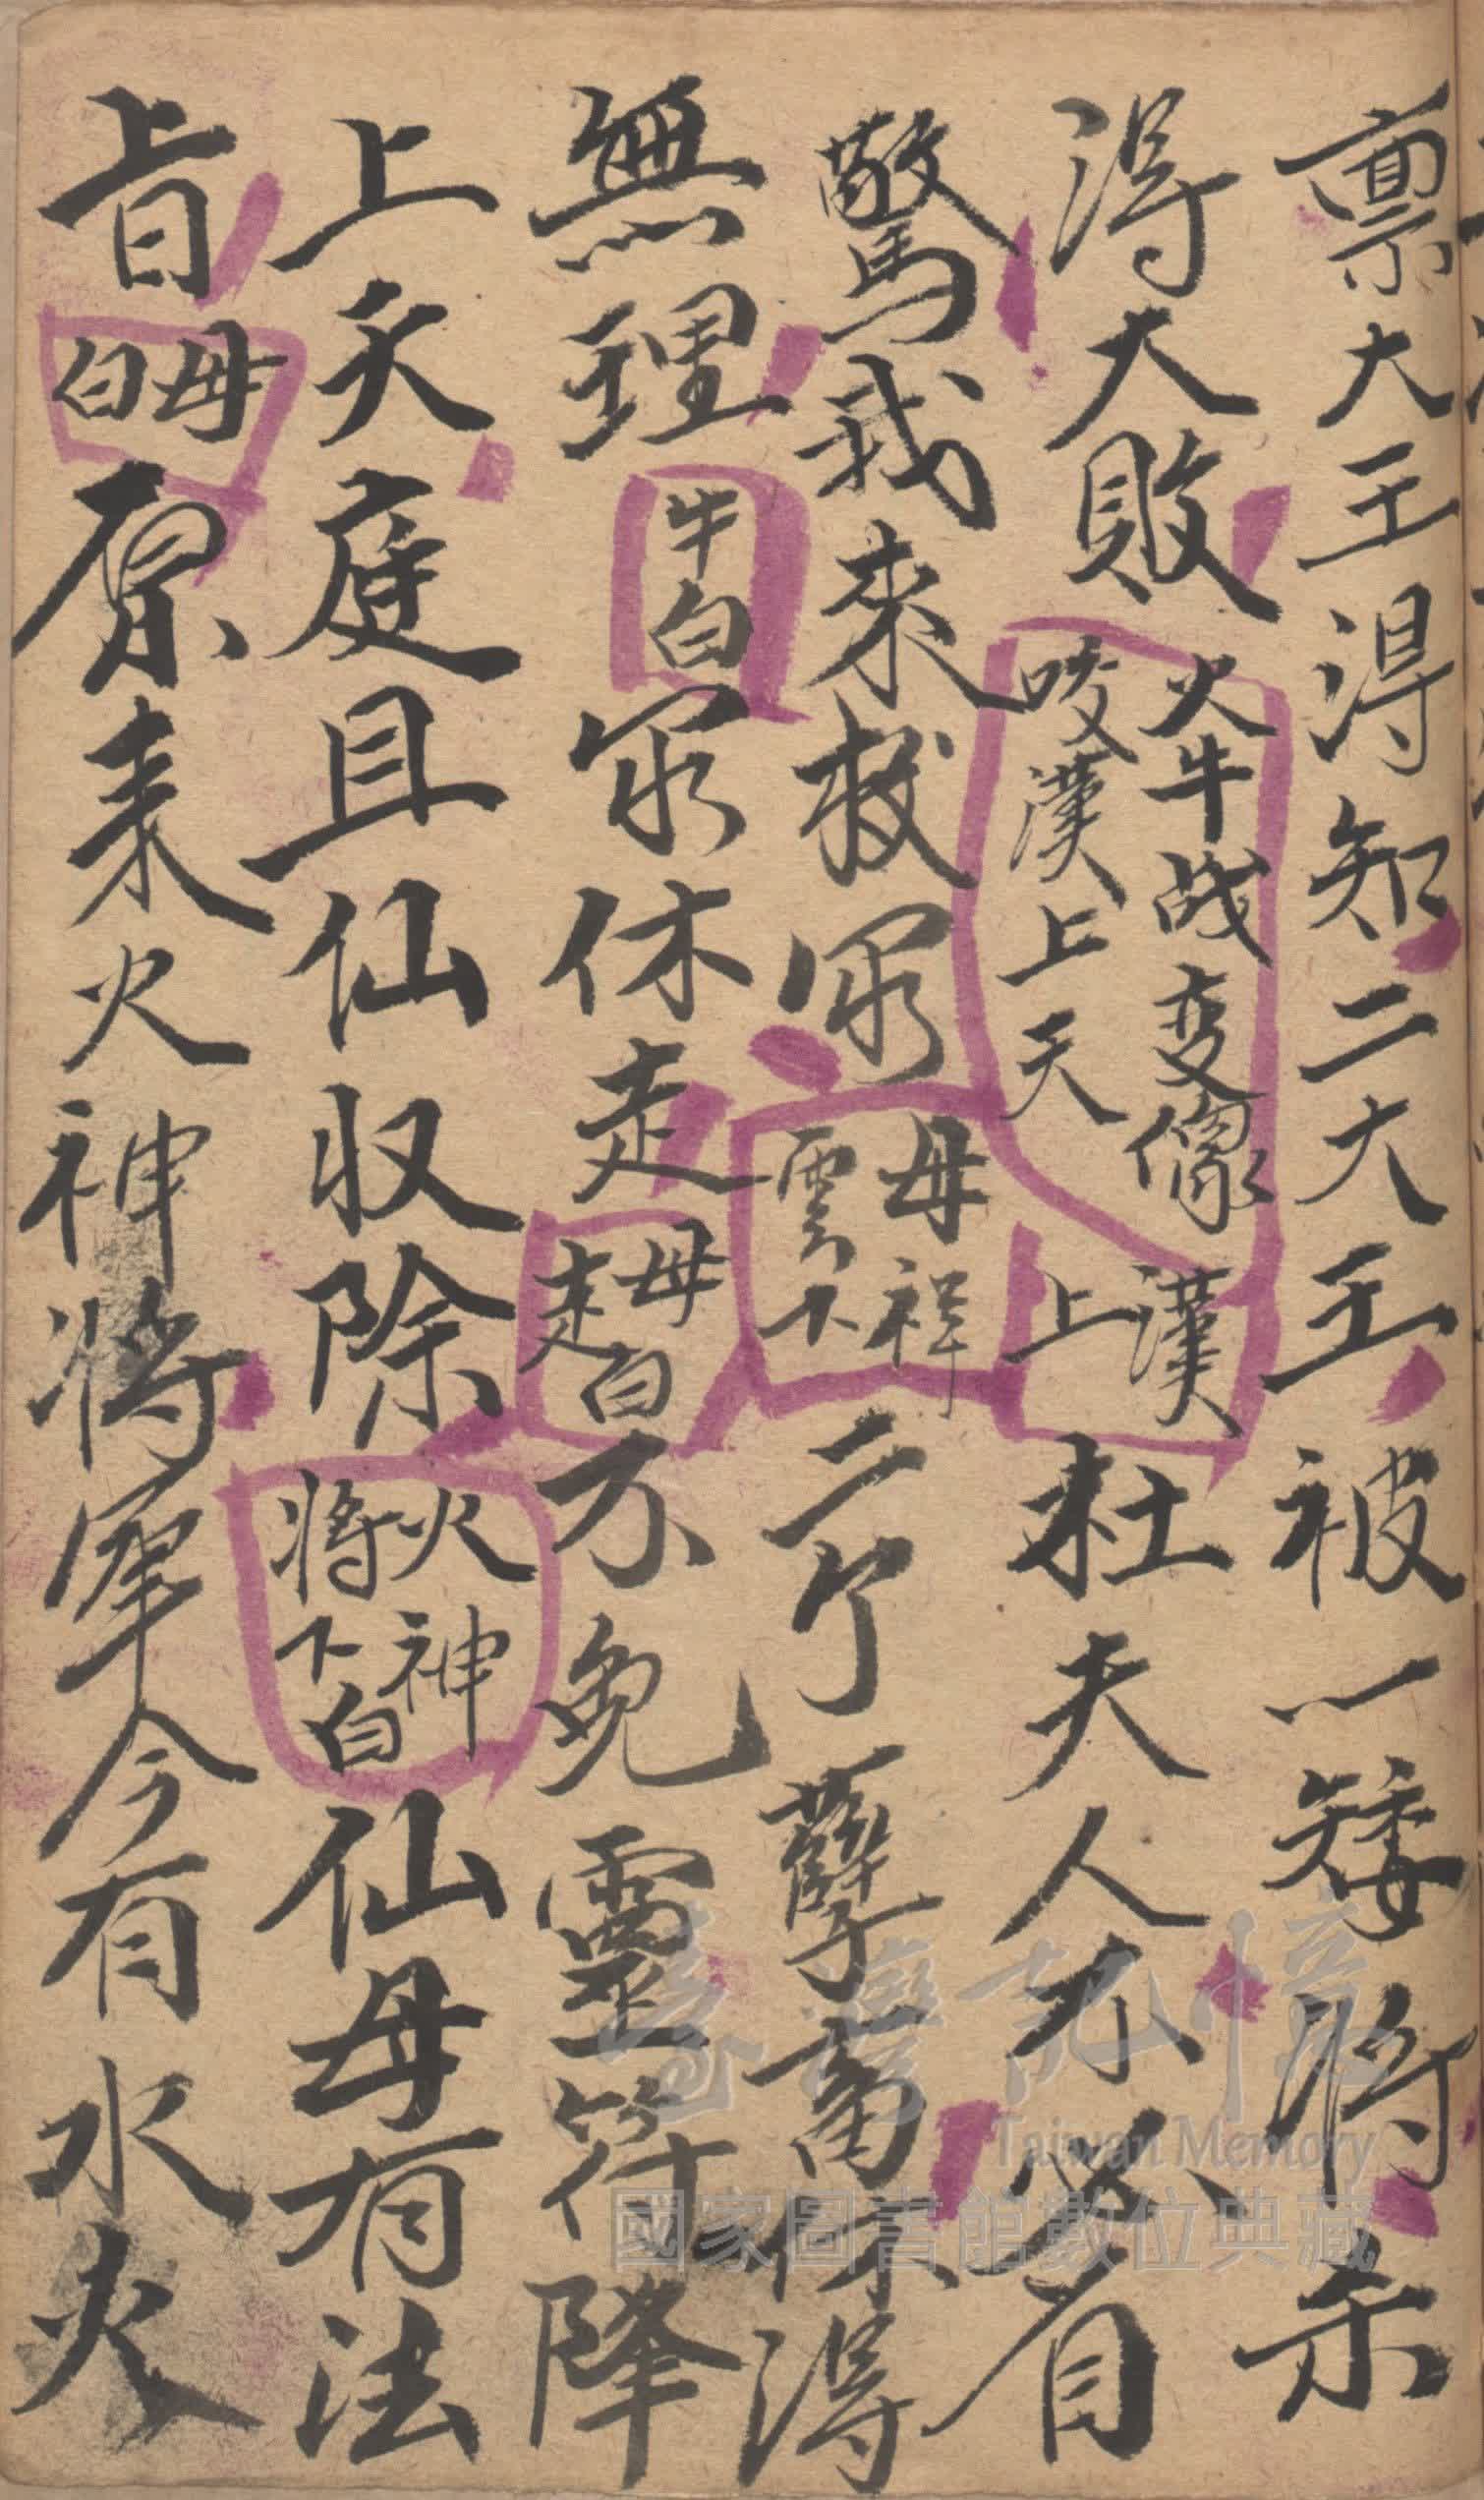 禀大王得知二大王被一矮將杀
得大敗火牛战变像咬漢上天漢上杜夫人不必首
驚我來救你母祥雲下二个孽畜休得
無理牛白你休走母赶白不免靈符降
上天庭且仙收除火神將下白仙母有法
旨母白原来火神將軍今有水火
臺灣記憶
Taiwan Memory
國家圖書館數位典藏